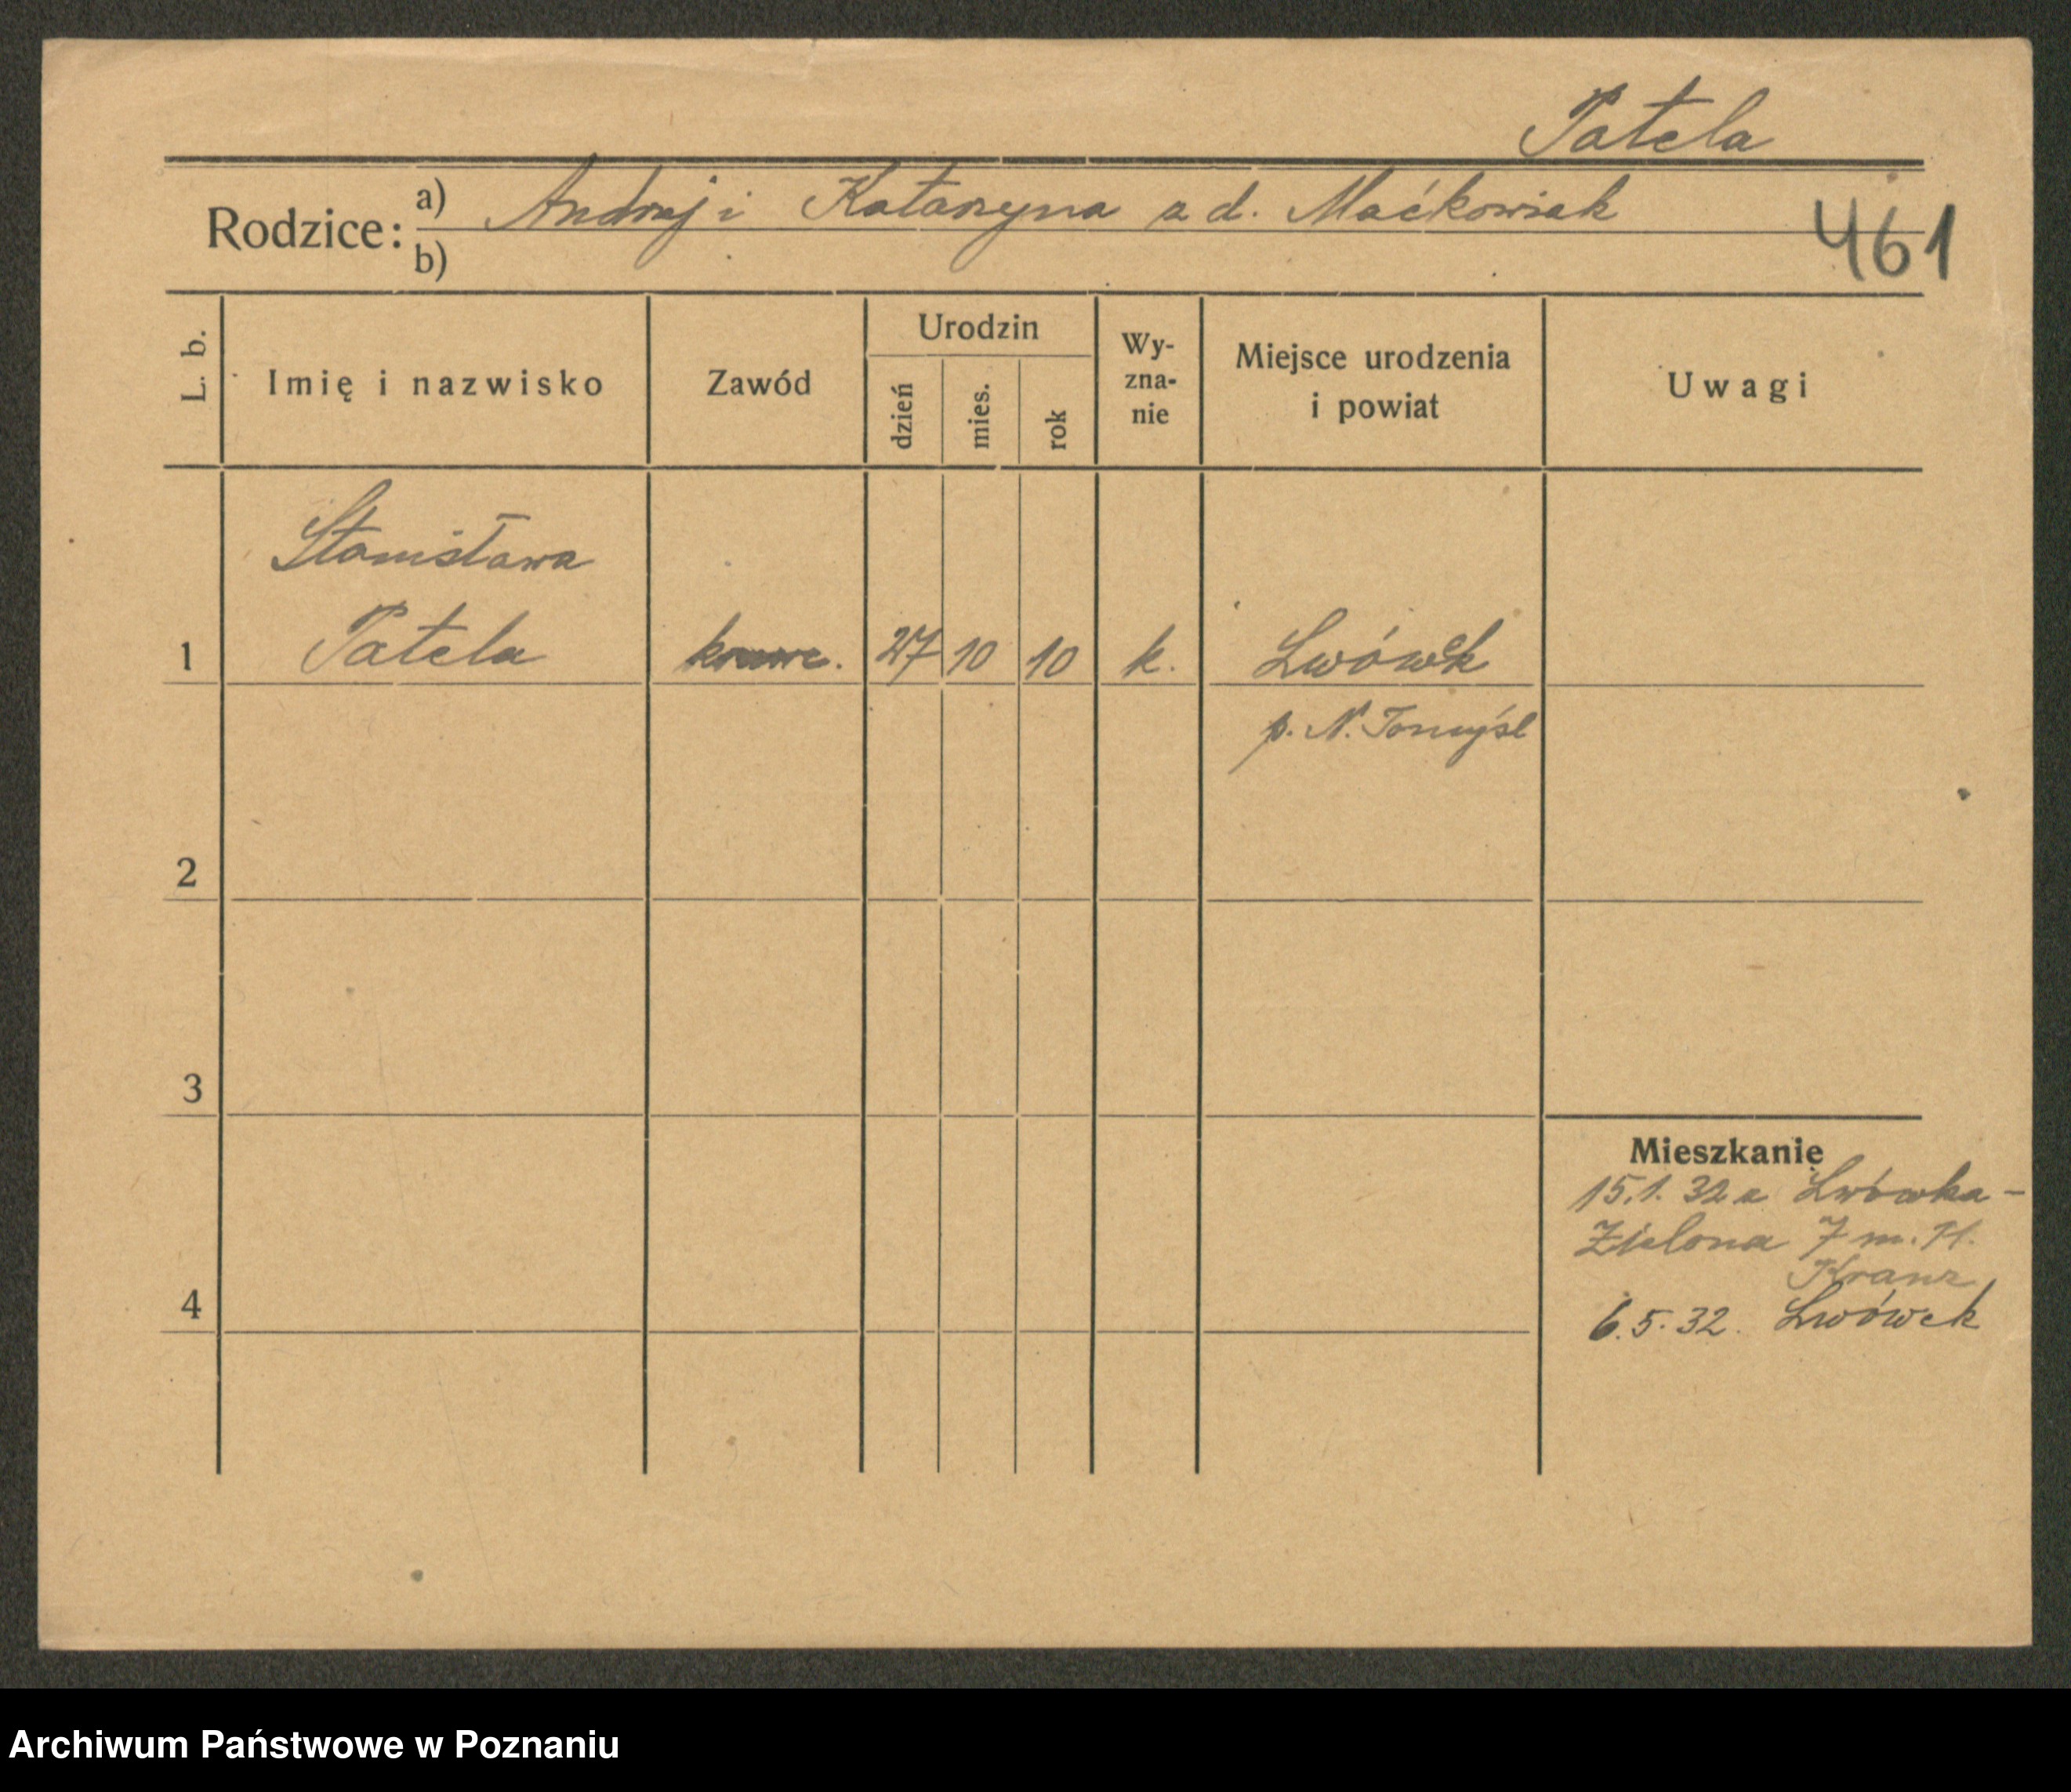 Patela
Rodzice: a) Andrzej i Katarzyna z d. Maćkowiak
b)
461
L. b. Imię i nazwisko Zawód Urodzin dzień mies. rok Wy-zna-nie Miejsce urodzenia i powiat Uwagi
Stanisława
1 Patela krawc. 27 10 10 k. Lwówek
p. N. Tomyśl
2
3
Mieszkanie
15.1.32 z Lwówka -
Zielona 7 m.
Kranz
4 6.5.32. Lwówek
Archiwum Państwowe w Poznaniu